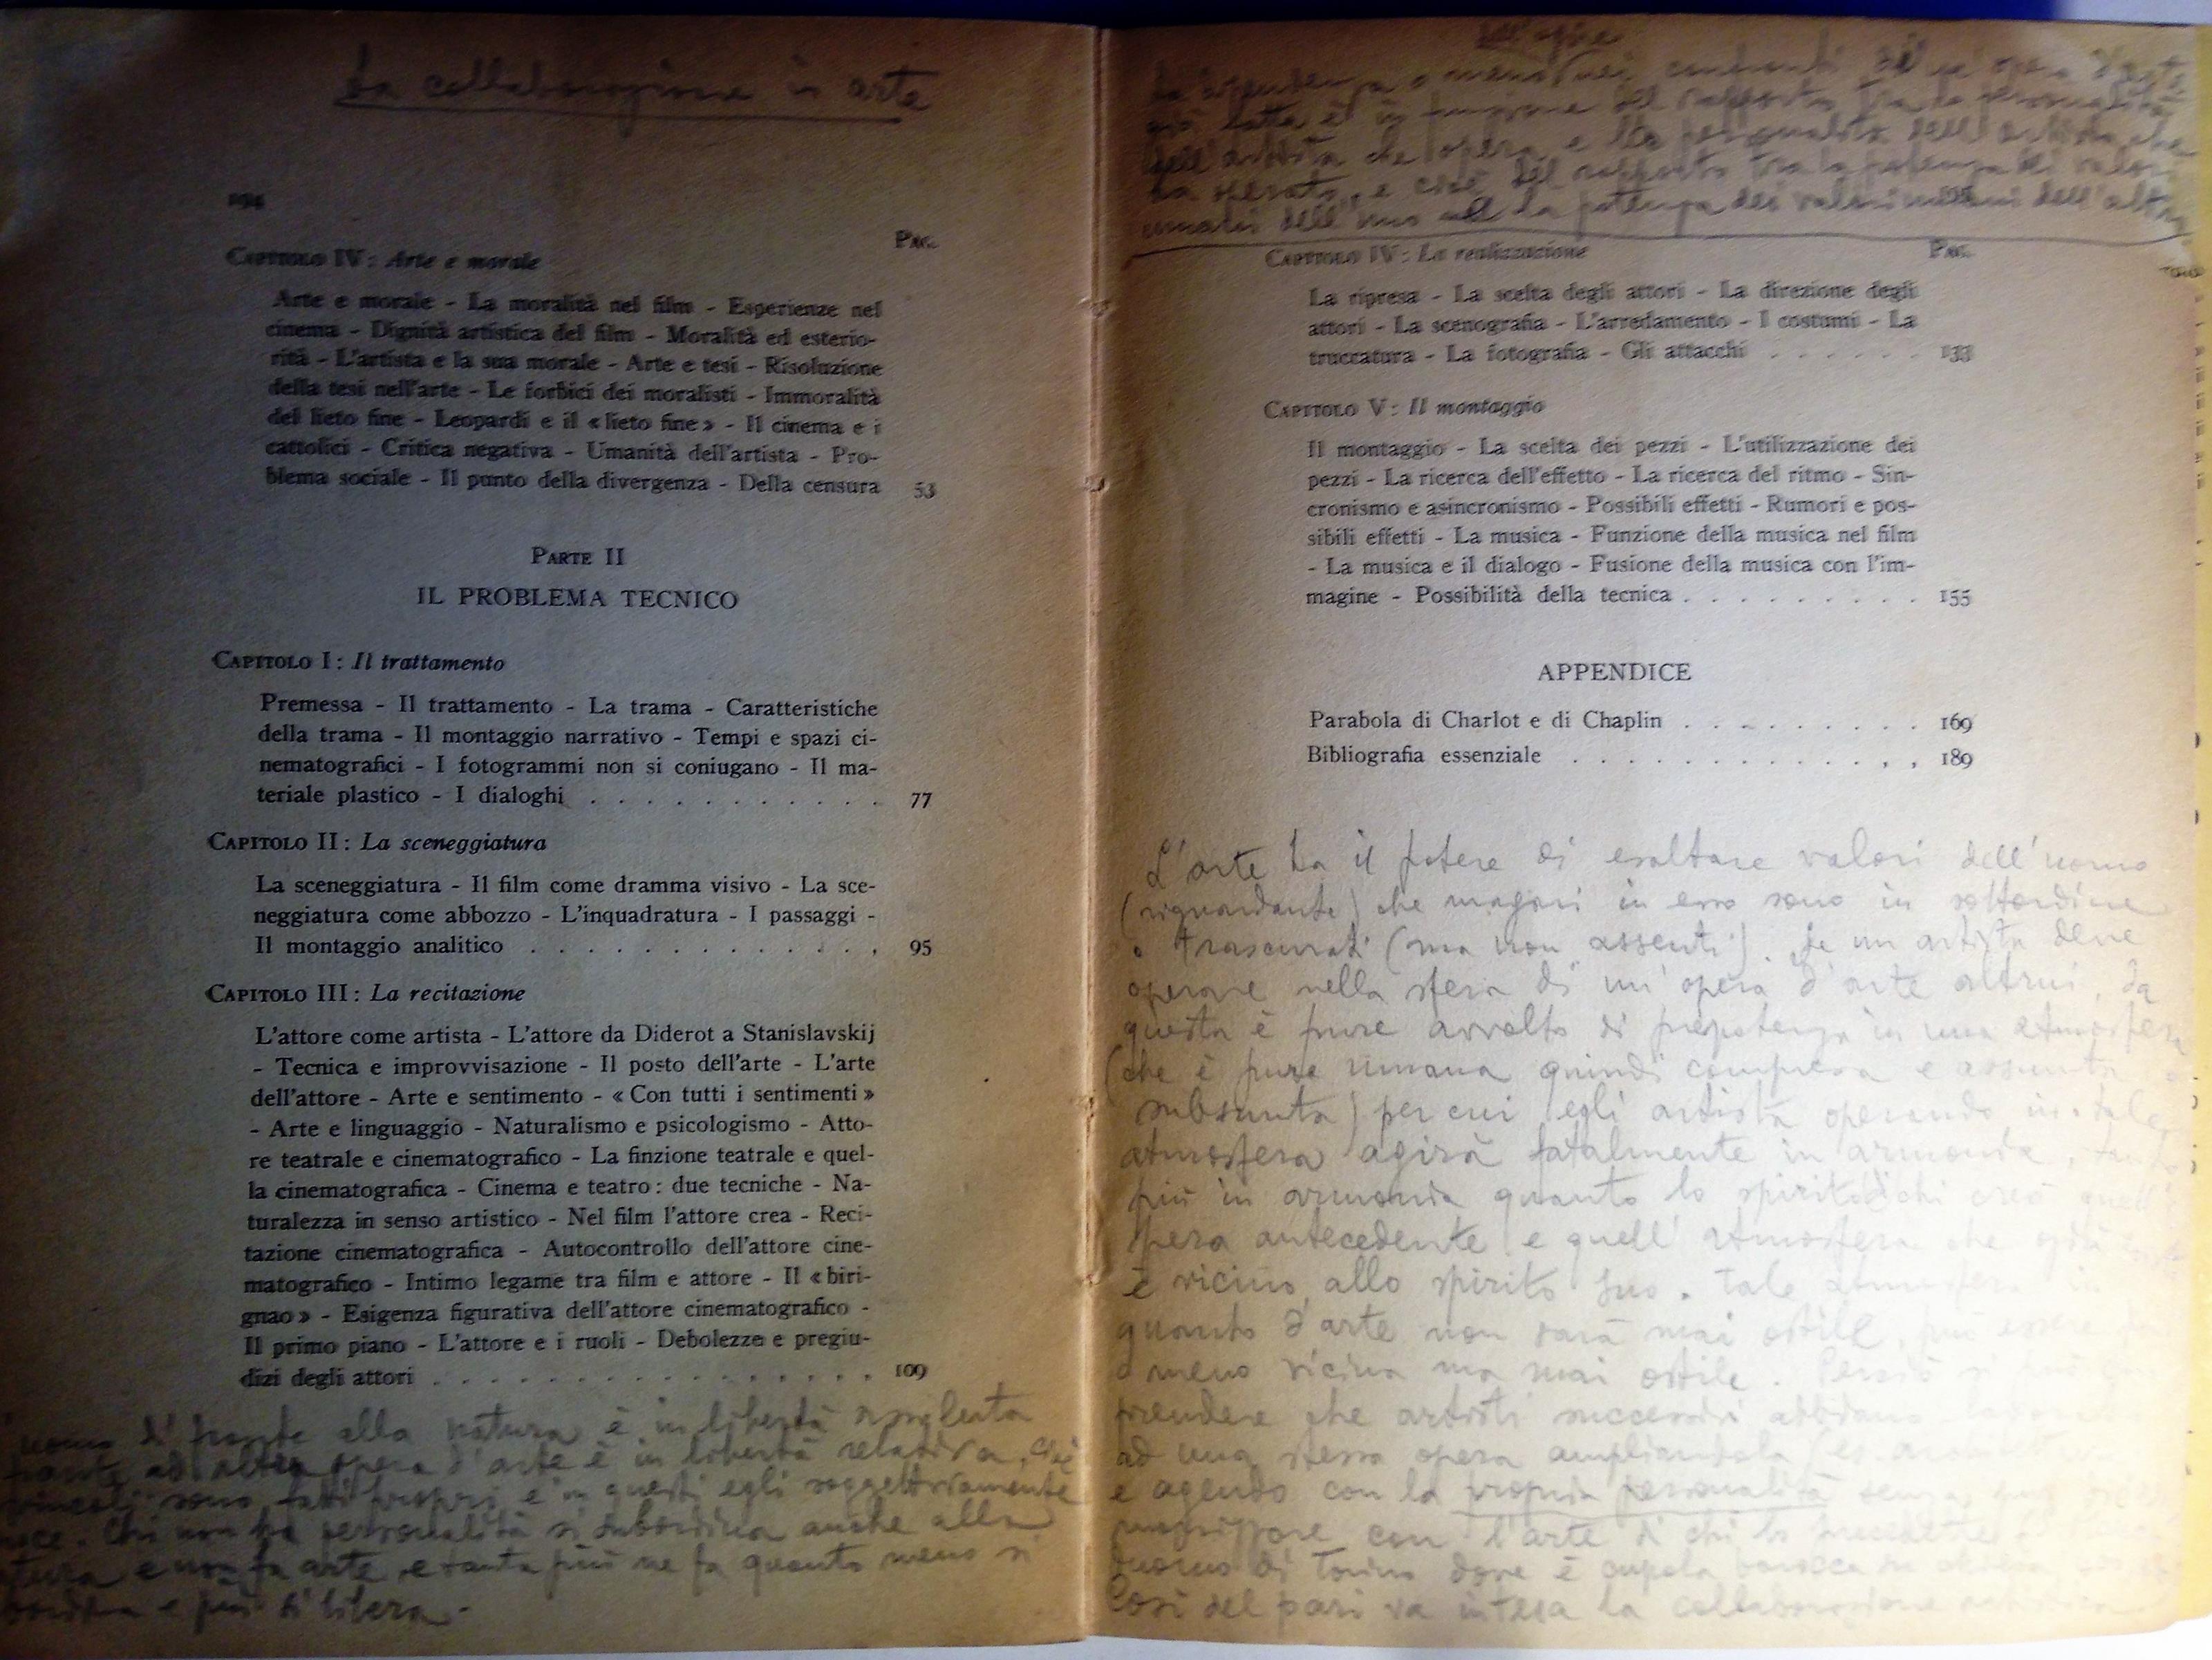 La collaborazione in arte
194
Pag.
Capitolo IV: Arte e morale
Arte e morale - La moralità nel film - Esperienze nel
cinema - Dignità artistica del film - Moralità ed esterio-
rità - L'artista e la sua morale - Arte e tesi - Risoluzione
della tesi nell'arte - Le forbici dei moralisti - Immoralità
del lieto fine - Leopardi e il «lieto fine» - Il cinema e i
cattolici - Critica negativa - Umanità dell'artista - Pro-
blema sociale - Il punto della divergenza - Della censura 53
Parte II
IL PROBLEMA TECNICO
Capitolo I: Il trattamento
Premessa - Il trattamento - La trama - Caratteristiche
della trama - Il montaggio narrativo - Tempi e spazi ci-
nematografici - I fotogrammi non si coniugano - Il ma-
teriale plastico - I dialoghi . . . . . . . . . . 77
Capitolo II: La sceneggiatura
La sceneggiatura - Il film come dramma visivo - La sce-
neggiatura come abbozzo - L'inquadratura - I passaggi -
Il montaggio analitico . . . . . . . . . . . . , 95
Capitolo III: La recitazione
L'attore come artista - L'attore da Diderot a Stanislavskij
- Tecnica e improvvisazione - Il posto dell'arte - L'arte
dell'attore - Arte e sentimento - «Con tutti i sentimenti»
- Arte e linguaggio - Naturalismo e psicologismo - Atto-
re teatrale e cinematografico - La finzione teatrale e quel-
la cinematografica - Cinema e teatro: due tecniche - Na-
turalezza in senso artistico - Nel film l'attore crea - Reci-
tazione cinematografica - Autocontrollo dell'attore cine-
matografico - Intimo legame tra film e attore - Il «biri-
gnao» - Esigenza figurativa dell'attore cinematografico -
Il primo piano - L'attore e i ruoli - Debolezze e pregiu-
dizi degli attori . . . . . . . . . . . . . . . 109
uomo di fronte alla natura è in libertà assoluta
ad altra opera d'arte è in libertà relativa, cioè
vincoli sono fatti propri e in questi egli soggettivamente
Chi non ha personalità si subordina anche alla
e non fa arte, e tanta più ne fa quanto meno si
e più si libera.
dell'agire
La dipendenza o meno nei confronti di un'opera d'arte
già fatta è in funzione del rapporto tra la personalità
dell'artista che opera e la personalità dell'artista che
ha operato, e cioè del rapporto tra la potenza dei valori
umani dell'uno e la potenza dei valori umani dell'altro
195
Pag.
Capitolo IV: La realizzazione
La ripresa - La scelta degli attori - La direzione degli
attori - La scenografia - L'arredamento - I costumi - La
truccatura - La fotografia - Gli attacchi . . . . . . 133
Capitolo V: Il montaggio
Il montaggio - La scelta dei pezzi - L'utilizzazione dei
pezzi - La ricerca dell'effetto - La ricerca del ritmo - Sin-
cronismo e asincronismo - Possibili effetti - Rumori e pos-
sibili effetti - La musica - Funzione della musica nel film
- La musica e il dialogo - Fusione della musica con l'im-
magine - Possibilità della tecnica . . . . . . . . . . 155
APPENDICE
Parabola di Charlot e di Chaplin . . . . . . . . . 169
Bibliografia essenziale . . . . . . . . . . . . , , 189
L'arte ha il potere di esaltare valori dell'uomo
(riguardante) che magari in esso sono in sottordine
o trascurati (ma non assenti). Se un artista deve
operare nella sfera di un'opera d'arte altrui, da
questa è pure avvolto di prepotenza in una atmosfera
(che è pure umana quindi compresa e assunta o
subsunta) per cui egli artista operando in tale
atmosfera agirà fatalmente in armonia,
più in armonia quanto lo spirito di chi creò
opera antecedente e quell'atmosfera che
è vicino allo spirito suo. Tale atmosfera in
quanto d'arte non sarà mai ostile, può essere
meno vicina ma mai ostile. Perciò si può
prendere che artisti successivi abbiano lavorato
ad una stessa opera ampliandola
e agendo con la propria personalità senza
con l'arte di chi lo precedette
duomo di Torino dove è cupola barocca su
Così del pari va intesa la collaborazione